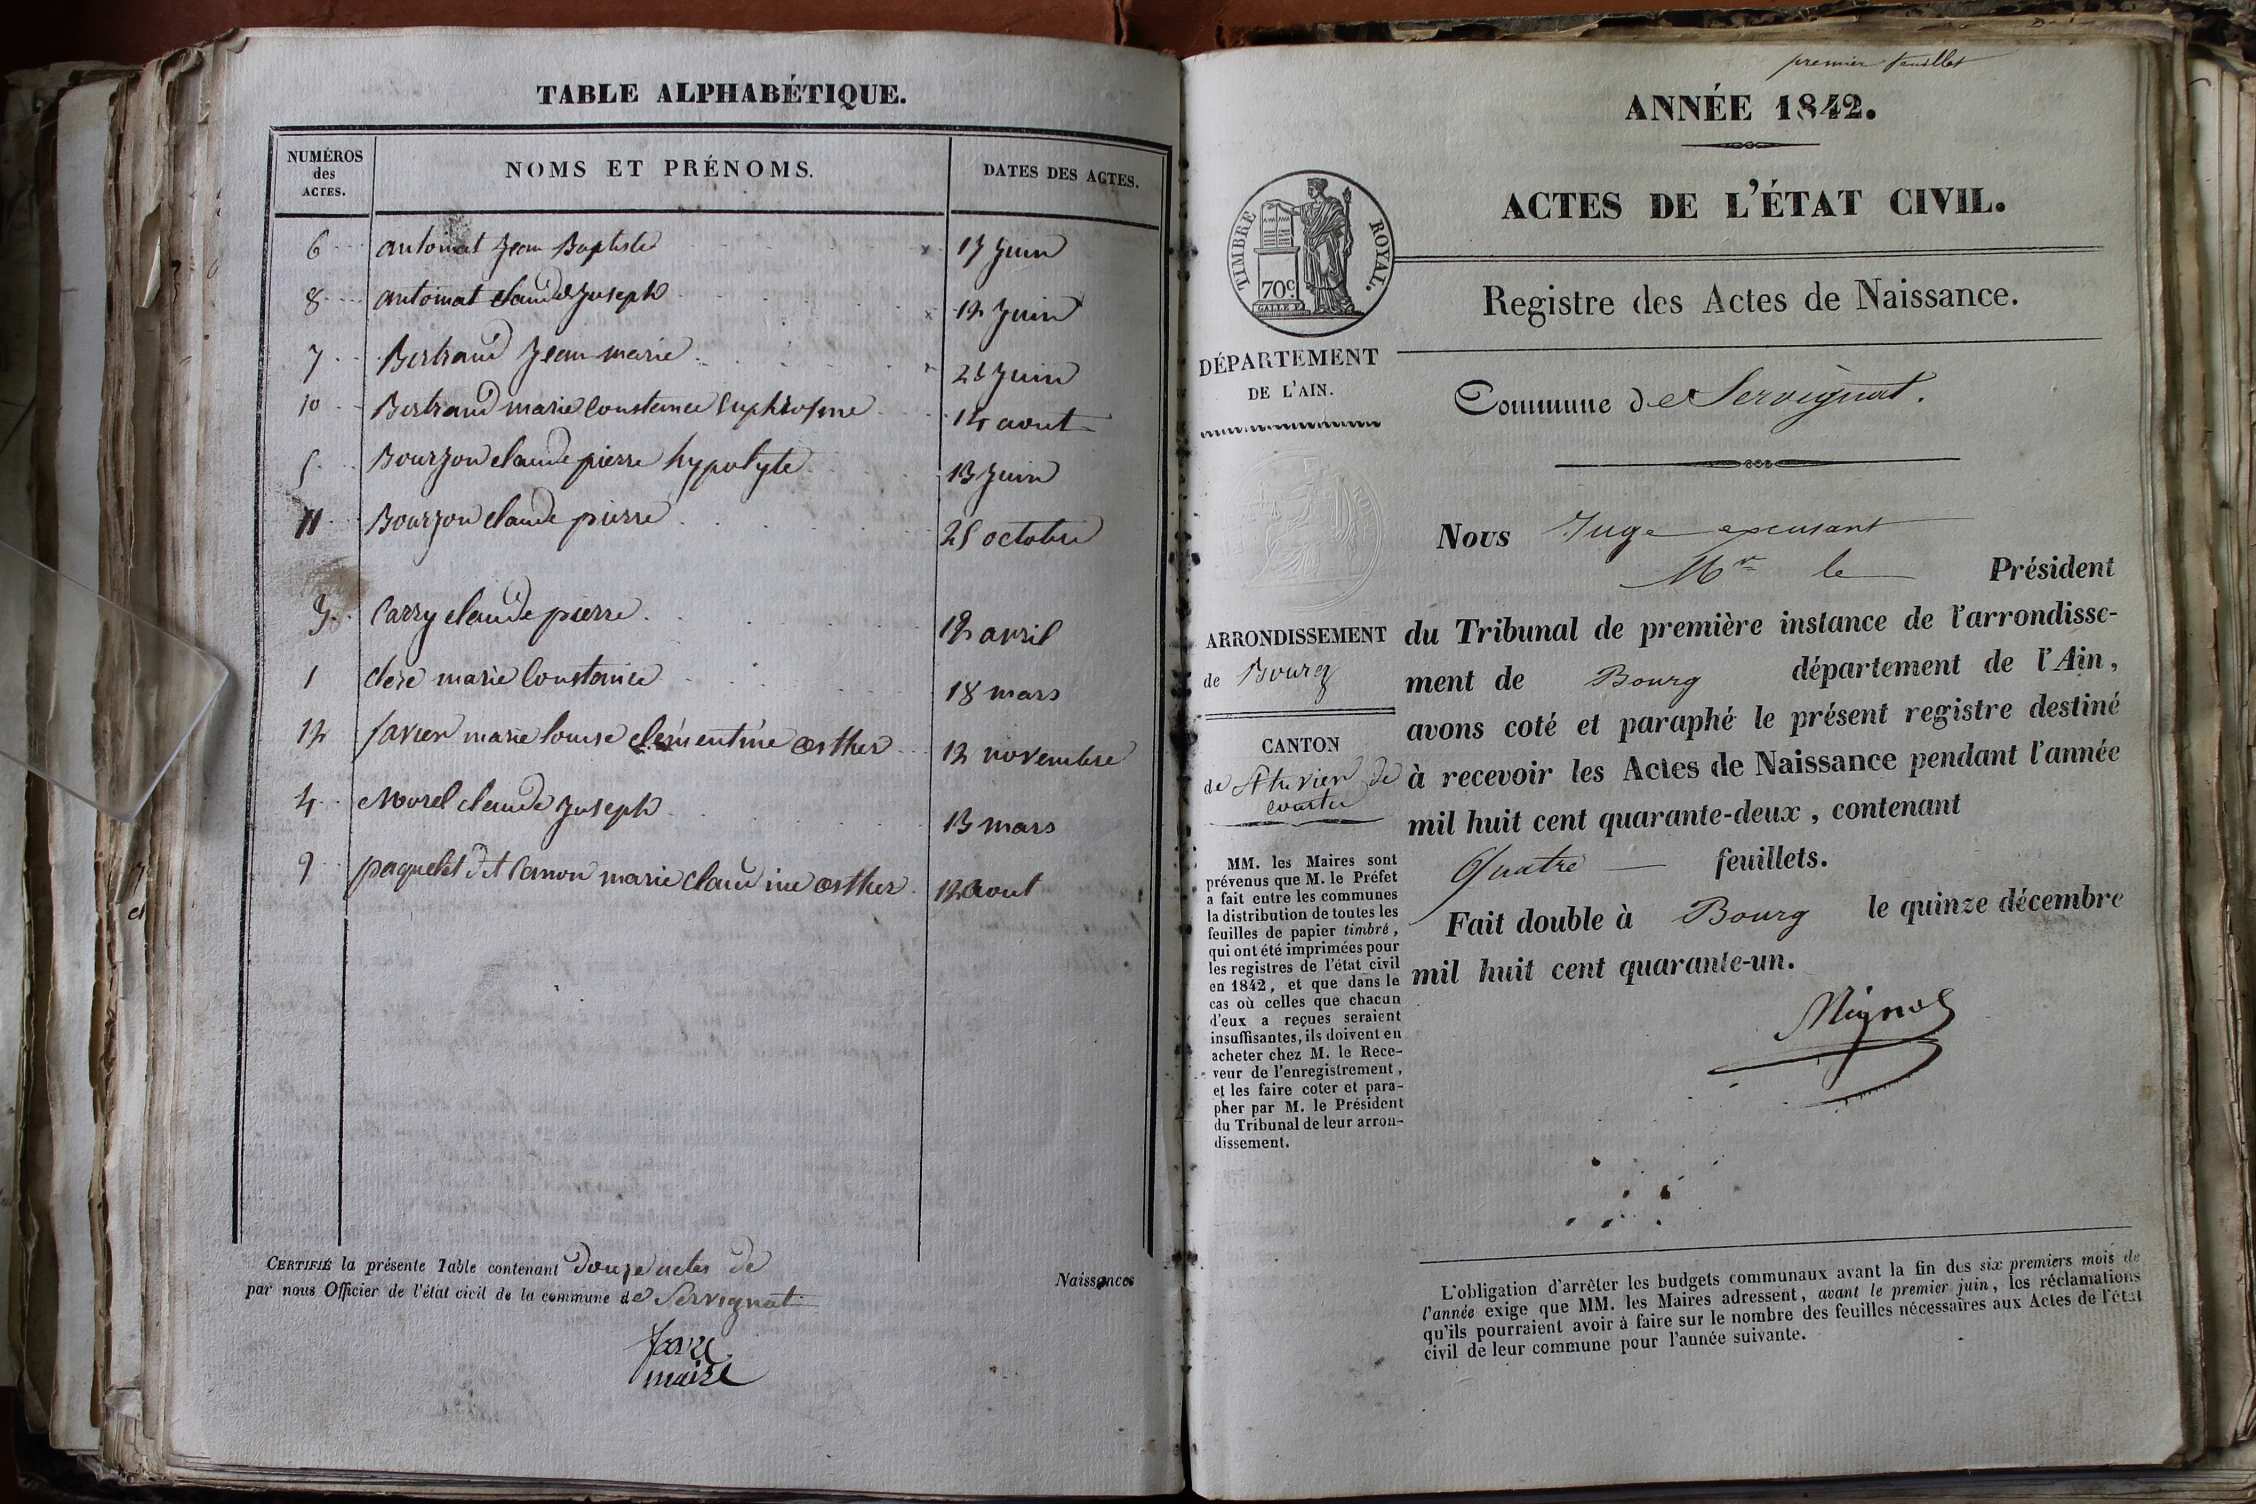 TABLE ALPHABÉTIQUE.
NUMÉROS
des
ACTES.
NOMS ET PRÉNOMS.
DATES DES ACTES.
6 antoinat Jean Baptiste 17 Juin
8 antoinat claude Joseph 12 Juin
7 Bertrand Jean marie 25 Juin
10 Bertrand marie Constance Euphrosine 14 aout
5 Bourzon claude pierre hypolyte 13 Juin
11 Bourzon claude pierre 25 octobre
3 Carry claude pierre 12 avril
1 Clere marie Constance 18 mars
12 favier marie louise clémentine oesther 12 novembre
4 Morel claude Joseph 13 mars
9 paquelet dit Camon marie claudine oesther 12 aout
CERTIFIÉ la présente Table contenant douze actes de Naissances
par nous Officier de l'état civil de la commune de Servignat
favre
maire
premier feuillet
ANNÉE 1842.
ACTES DE L'ÉTAT CIVIL.
TIMBRE ROYAL.
70c
Registre des Actes de Naissance.
DÉPARTEMENT
DE L'AIN.
Commune de Servignat.
Nous Juge excusant
Mr le Président
du Tribunal de première instance de l'arrondisse-
ment de Bourg département de l'Ain,
avons coté et paraphé le présent registre destiné
à recevoir les Actes de Naissance pendant l'année
mil huit cent quarante-deux, contenant
Quatre feuillets.
Fait double à Bourg le quinze décembre
mil huit cent quarante-un.
Mignot
ARRONDISSEMENT
de Bourg
CANTON
de St trivier de
courtes
MM. les Maires sont
prévenus que M. le Préfet
a fait entre les communes
la distribution de toutes les
feuilles de papier timbré,
qui ont été imprimées pour
les registres de l'état civil
en 1842, et que dans le
cas où celles que chacun
d'eux a reçues seraient
insuffisantes, ils doivent en
acheter chez M. le Rece-
veur de l'enregistrement,
et les faire coter et para-
pher par M. le Président
du Tribunal de leur arron-
dissement.
L'obligation d'arrêter les budgets communaux avant la fin des six premiers mois de
l'année exige que MM. les Maires adressent, avant le premier juin, les réclamations
qu'ils pourraient avoir à faire sur le nombre des feuilles nécessaires aux Actes de l'état
civil de leur commune pour l'année suivante.